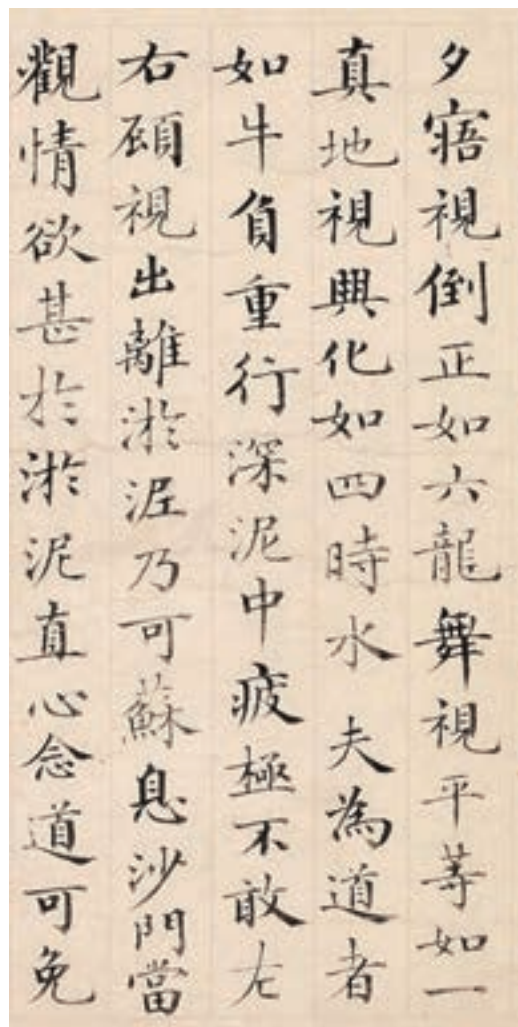 夕寤視倒正如六龍舞視平等如一
真地視興化如四時水 夫為道者
如牛負重行深泥中疲極不敢左
右頋視出離淤泥乃可蘇息沙門當
觀情欲甚於淤泥直心念道可免